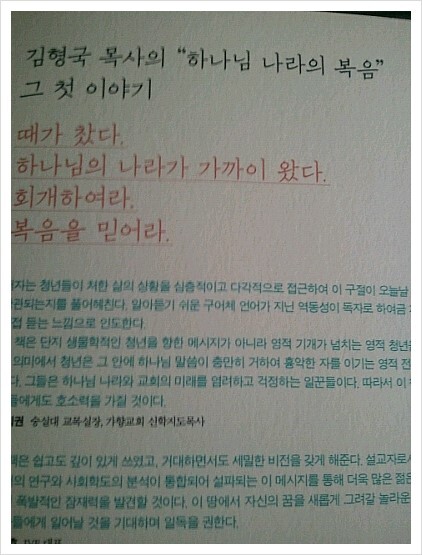 김형국 목사의 “하나님 나라의 복음”
그 첫 이야기
때가 찼다.
하나님의 나라가 가까이 왔다.
회개하여라.
복음을 믿어라.
자는 청년들이 처한 삶의 상황을 심층적이고 다각적으로 접근하여 이 구절이 오늘날
관되는지를 풀어헤친다. 알아듣기 쉬운 구어체 언어가 지닌 역동성이 독자로 하여금
접 듣는 느낌으로 인도한다.
책은 단지 생물학적인 청년을 향한 메시지가 아니라 영적 기개가 넘치는 영적 청년
의미에서 청년은 그 안에 하나님 말씀이 충만히 거하여 흉악한 자를 이기는 영적 전
다. 그들은 하나님 나라와 교회의 미래를 염려하고 걱정하는 일꾼들이다. 따라서 이
들에게도 호소력을 가질 것이다.
권 숭실대 교목실장, 가향교회 신학지도목사
책은 쉽고도 깊이 있게 쓰였고, 거대하면서도 세밀한 비전을 갖게 해준다. 설교자로서
의 연구와 사회학도의 분석이 통합되어 설파되는 이 메시지를 통해 더욱 많은 젊은
폭발적인 잠재력을 발견할 것이다. 이 땅에서 자신의 꿈을 새롭게 그려갈 놀라운
들에게 일어날 것을 기대하며 일독을 권한다.
대표